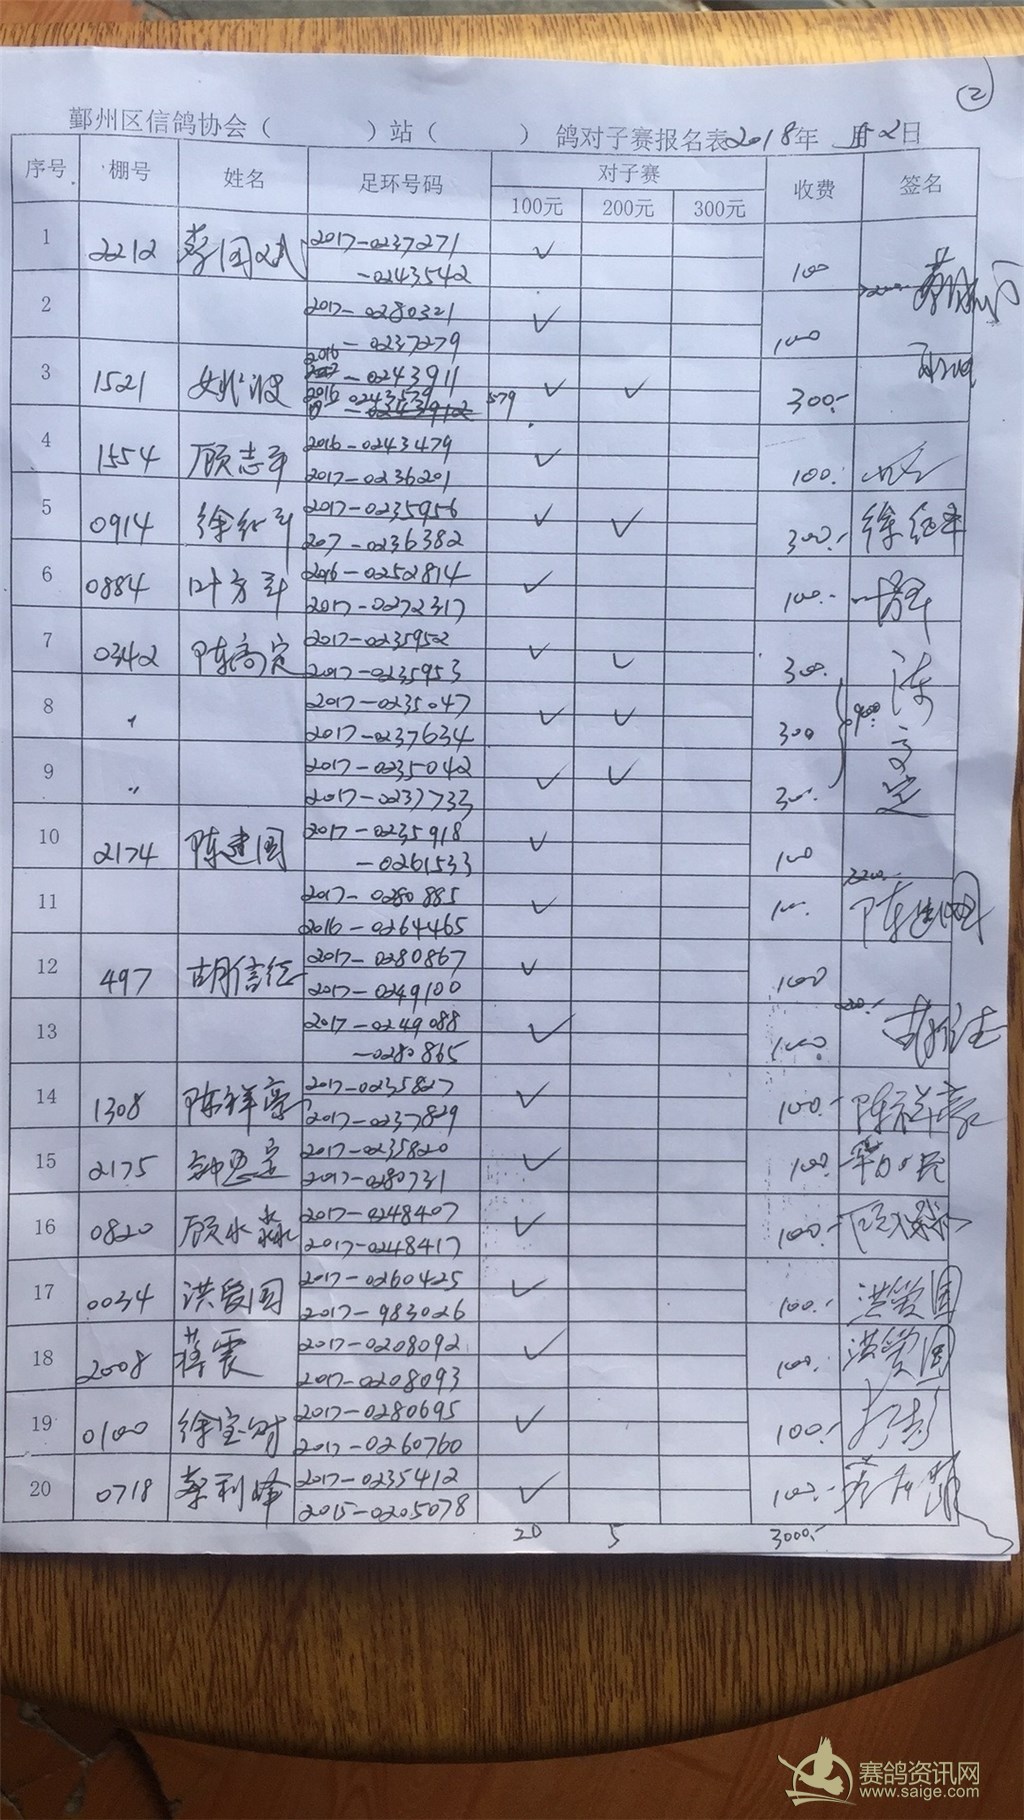 ②
鄞州区信鸽协会（ ）站（ ） 鸽对子赛报名表2018年 月2日
序号 棚号 姓名 足环号码 对子赛 收费 签名
100元 200元 300元
1 2212 2017-0237271 ✓ 100
-0243542
2 2017-0280321 ✓ 100
-0237279
3 1521 姚波 2016-0243911 ✓ ✓ 300.-
2016 0243579 579
4 1554 顾志平 2016-0243479 ✓ 100.
2017-0236201
5 0914 徐红平 2017-0235956 ✓ ✓ 300.- 徐红平
207-0236382
6 0884 叶方平 2016-0252814 ✓ 100.-
2017-0272317
7 0342 陈高定 2017-0235952 ✓ ✓ 300.
2017-0235953
8 〃 2017-0235047 ✓ ✓ 300
2017-0237634
9 〃 2017-0235042 ✓ ✓ 300.
2017-0237733
10 2174 陈建国 2017-0235918 ✓ 100
-0261533
11 2017-0280885 ✓ 100. 陈建国
2016-0264465
12 497 胡信 2017-0280867 ✓ 100
2017-0249100
13 2017-0249088 ✓ 100
-0280865
14 1308 陈祥豪 2017-0235827 ✓ 100.- 陈祥豪
2017-0237829
15 2175 2017-0235820 ✓ 100.
2017-0280731
16 0820 顾水淼 2017-0248407 ✓ 100.-
2017-0248417
17 0034 洪爱国 2017-0260425 ✓ 100.- 洪爱国
2017-983026
18 2008 蒋震 2017-0208092 ✓ 100. 洪爱国
2017-0208093
19 0100 徐宝财 2017-0280695 ✓ 100.-
2017-0260760
20 0718 蔡利峰 2017-0235412 ✓ 100.-
2015-0205078
20 5 3000.-
赛鸽资讯网
www.saige.com